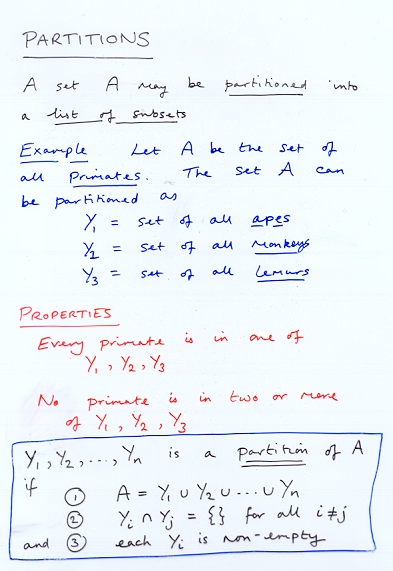 PARTITIONS
A set A may be partitioned into
a list of subsets
Example Let A be the set of
all Primates. The set A can
be partitioned as
Y₁ = set of all apes
Y₂ = set of all Monkeys
Y₃ = set of all Lemurs
PROPERTIES
Every primate is in one of
Y₁, Y₂, Y₃
No primate is in two or more
of Y₁, Y₂, Y₃
Y₁, Y₂, ..., Yn is a partition of A
if ① A = Y₁ ∪ Y₂ ∪ ... ∪ Yn
② Yi ∩ Yj = {} for all i≠j
and ③ each Yi is non-empty